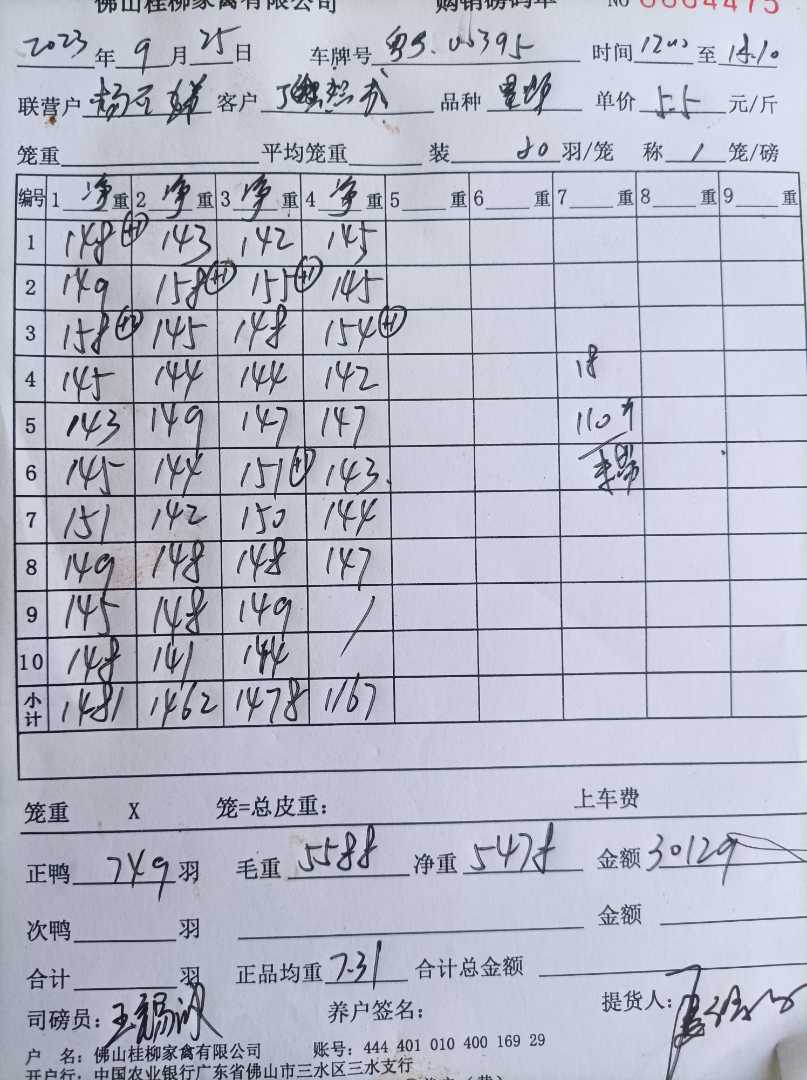 佛山桂柳家禽有限公司 购销磅码单 NO 0004475
2023 年 9 月 25 日 车牌号 粤S.05395 时间 1200 至 14.10
联营户 客户 品种 单价 5.5 元/斤
笼重 平均笼重 装 20 羽/笼 称 1 笼/磅
编号 1 净 重 2 净 重 3 净 重 4 净 重 5 重 6 重 7 重 8 重 9 重
1 148 (+1) 143 142 145
2 149 158 (+1) 155 (+1) 145
3 158 145 148 154 (+1)
4 145 144 144 142 18
5 143 149 147 147 110
6 145 144 151 (+1) 143
7 151 142 150 144
8 149 148 148 147
9 145 148 149 /
10 148 141 144
小计 1481 1462 1478 1167
笼重 X 笼=总皮重： 上车费
正鸭 749 羽 毛重 5588 净重 5478 金额 30129
次鸭 羽 金额
合计 羽 正品均重 7.31 合计总金额
司磅员：王锡 养户签名： 提货人：
户 名：佛山桂柳家禽有限公司 账号：444 401 010 400 169 29
开户行：中国农业银行广东省佛山市三水区三水支行